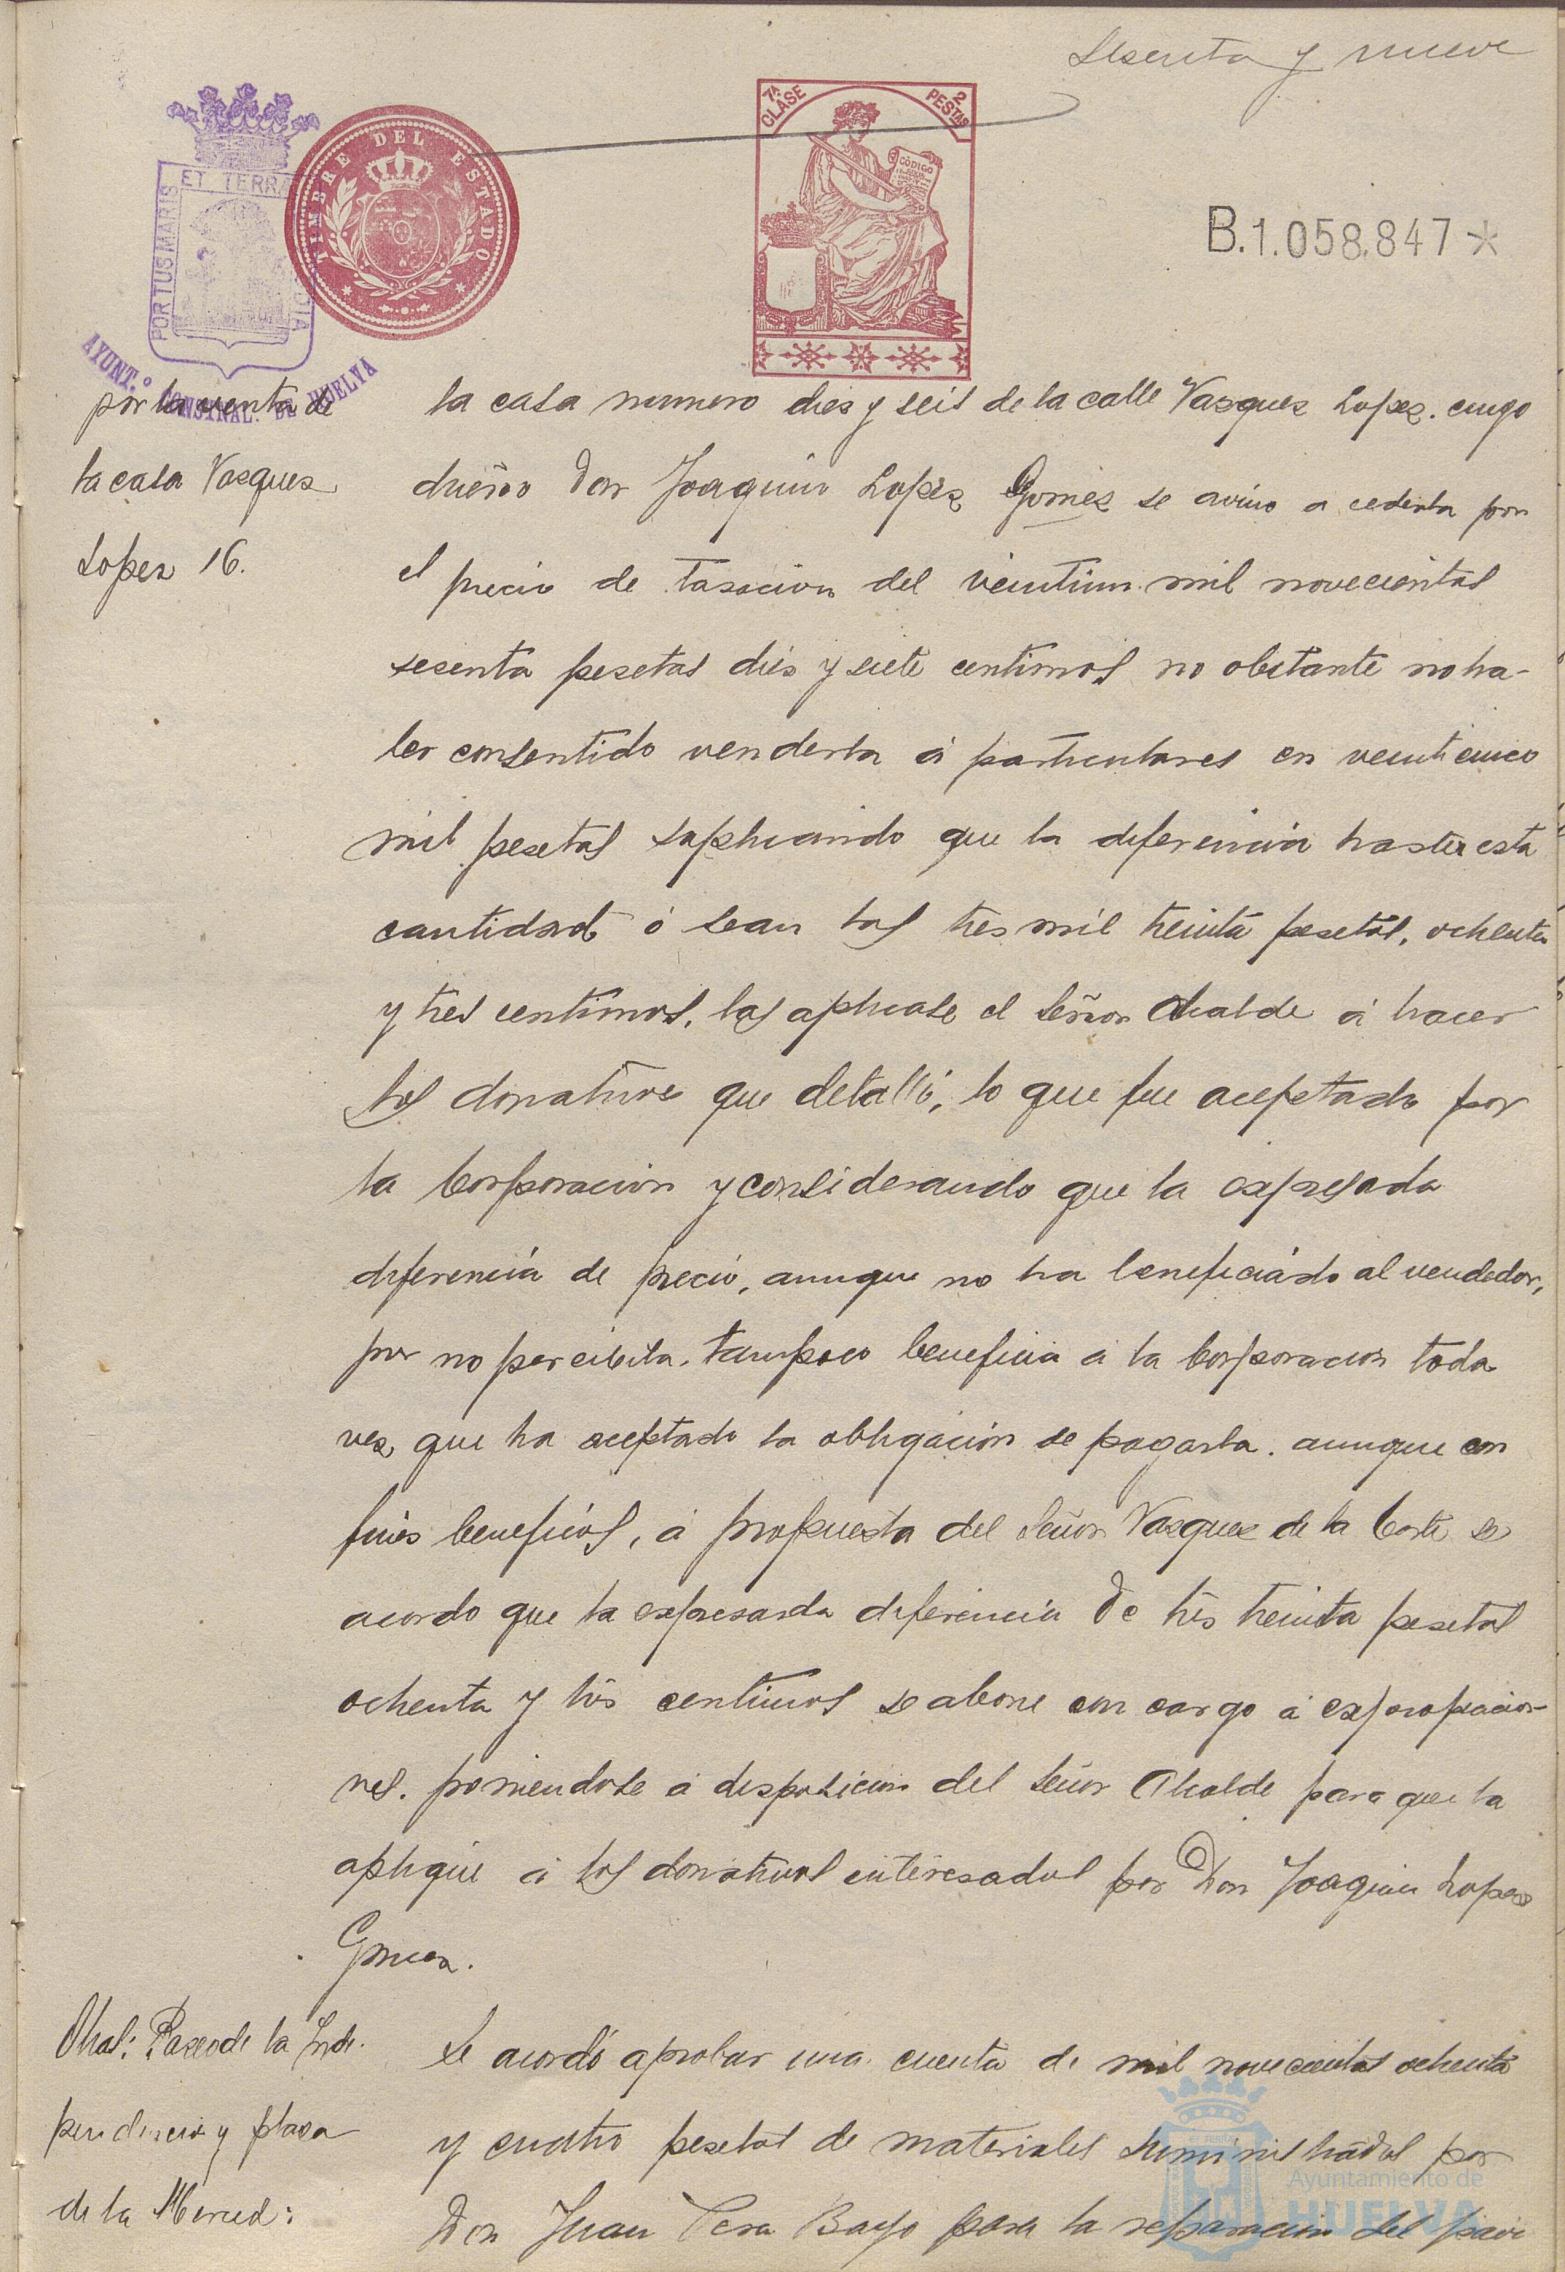 Sesenta y nueve
7ª CLASE
2 PESTAS
CÓDIGO
TIMBRE DEL ESTADO
PORTUS MARIS ET TERRA DIA
AYUNT.º CONSTNAL. DE HUELVA
B.1.058.847*
por la venta de
la casa Vazquez
Lopez 16.
la casa numero dies y seis de la calle Vazquez Lopez. cuyo
dueño Don Joaquin Lopez Gomez se avino a cederla por
el precio de tasacion del veintiun mil novecientas
sesenta pesetas dies y siete centimos no obstante no ha-
ber consentido venderla á particulares en veinticinco
mil pesetas suplicando que la diferencia hasta esta
cantidad ó sean las tres mil treinta pesetas, ochenta
y tres centimos, las aplicase el Señor Alcalde á hacer
los donativos que detalló, lo que fue aceptado por
la Corporacion y considerando que la expresada
diferencia de precio, aunque no ha beneficiado al vendedor,
por no percibirla, tampoco beneficia a la Corporacion toda
vez que ha aceptado la obligacion de pagarla. aunque con
fines beneficos, á propuesta del Señor Vazquez de la Corte se
acordo que la expresada diferencia de tres treinta pesetas
ochenta y tres centimos se abone con cargo á expropiacio-
nes. poniendose á disposicion del Señor Alcalde para que la
aplique á los donativos interesados por Don Joaquin Lopez
Gomez.
Obras: Paseo de la Inde-
pendencia y plaza
de la Merced:
Se acordó aprobar una cuenta de mil novecientas ochenta
y cuatro pesetas de materiales suministrados por
Don Juan Vera Bayo para la reparacion del pavi
Ayuntamiento de
HUELVA